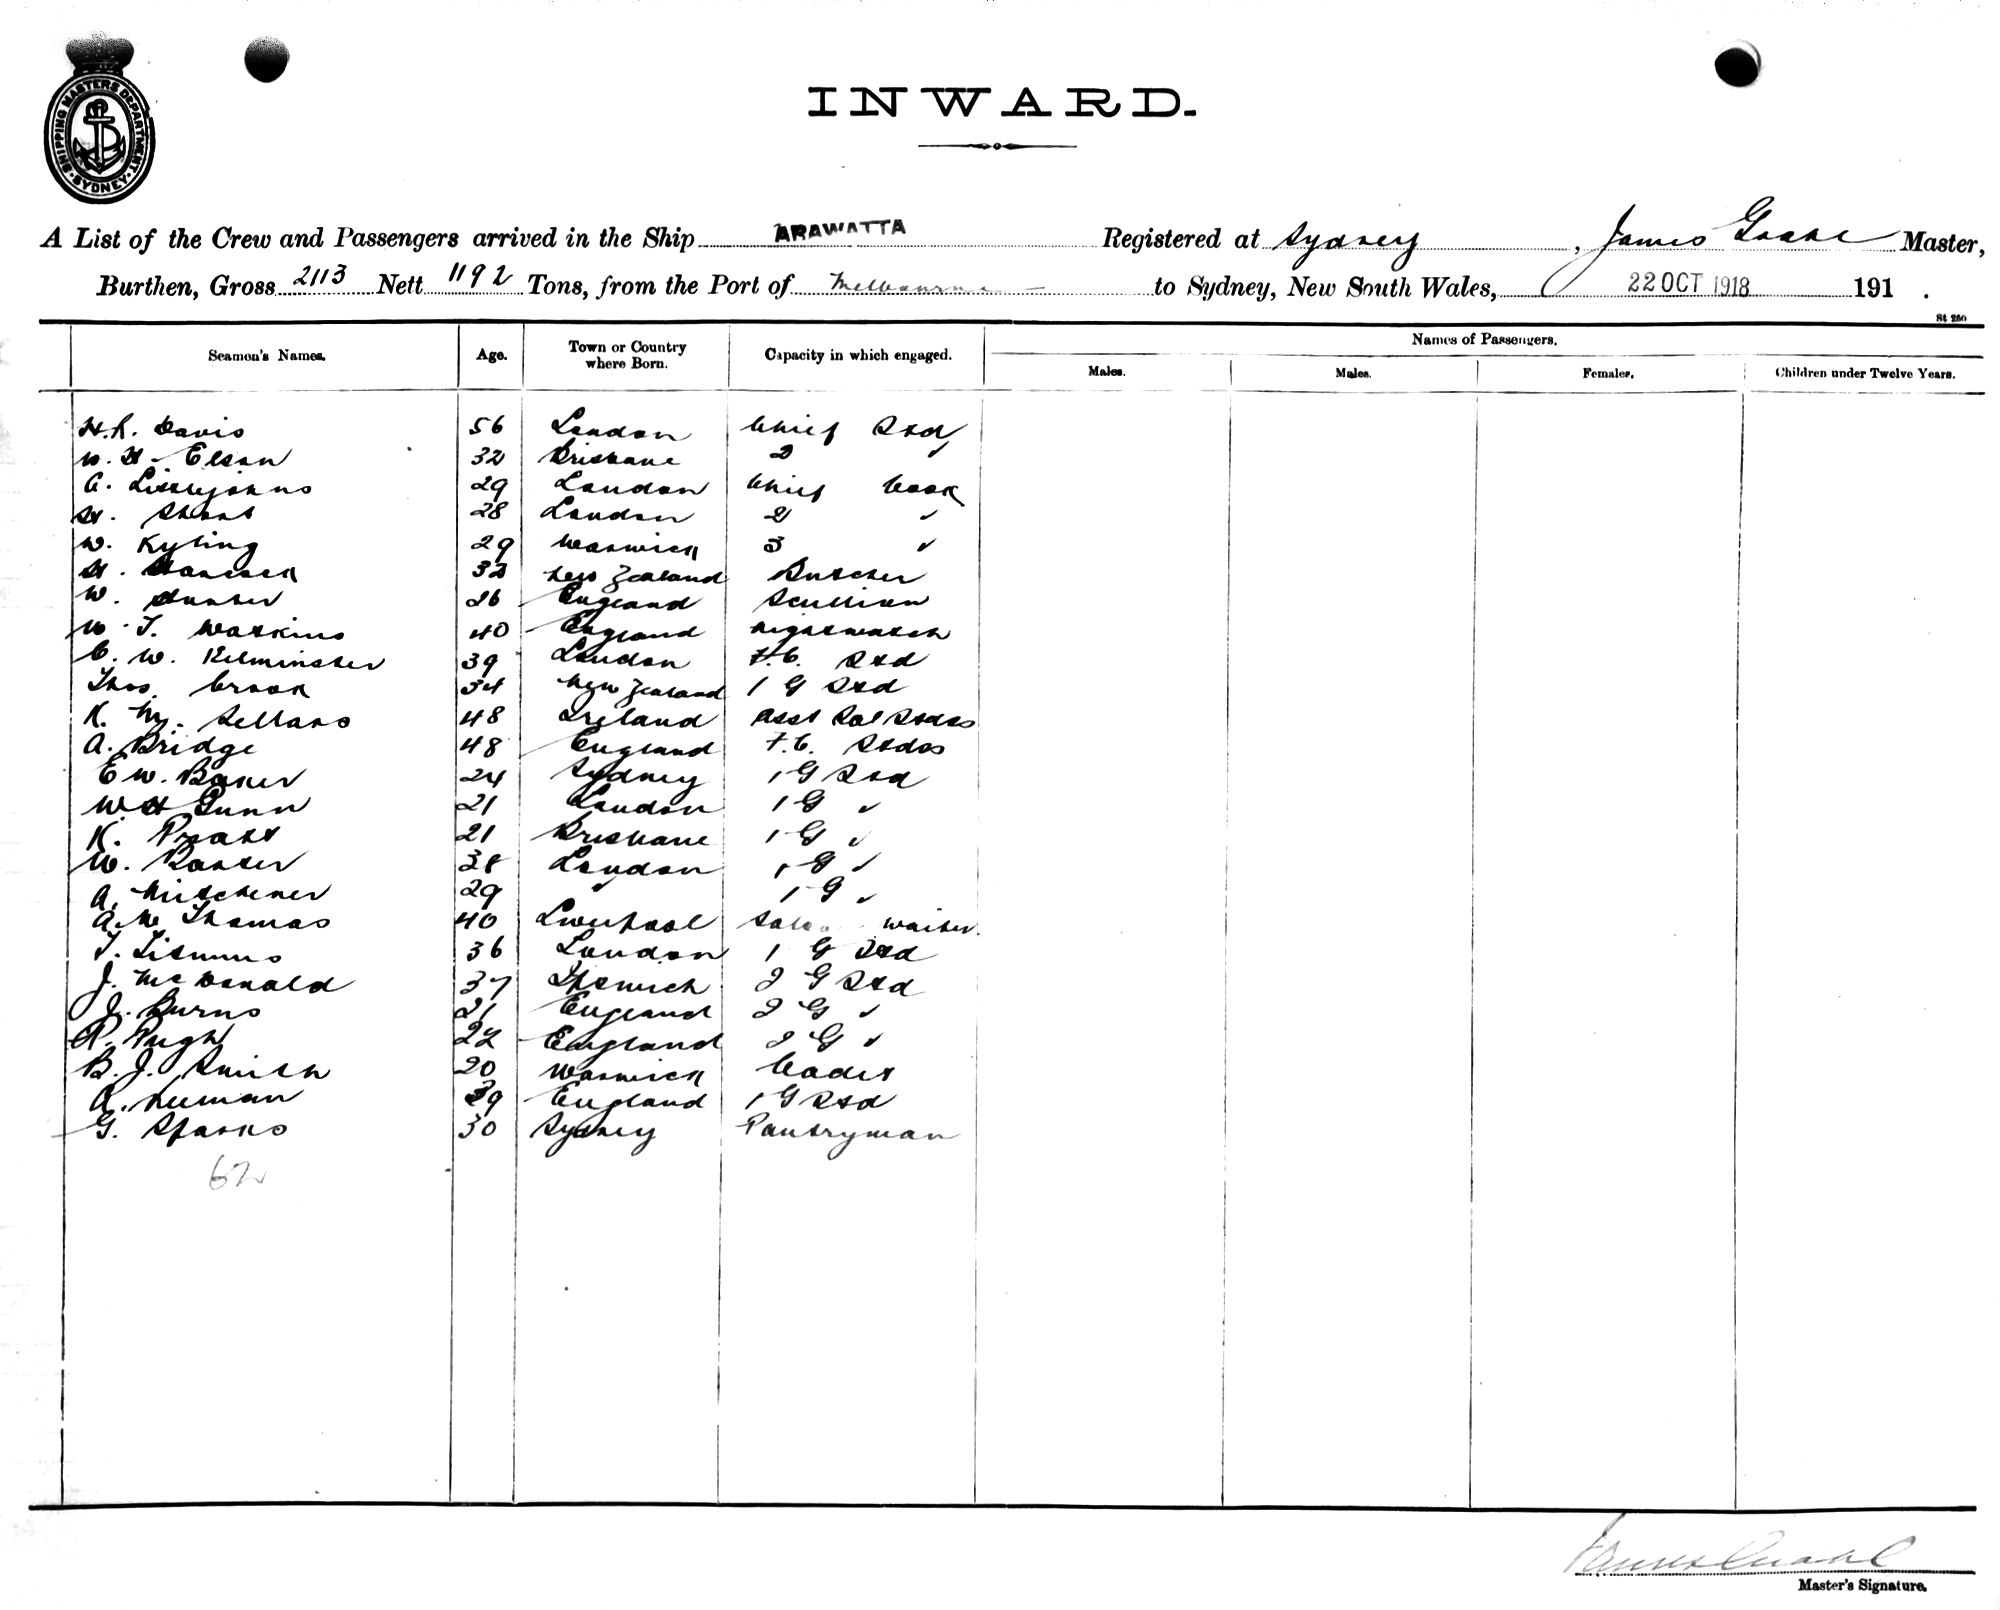 SHIPPING MASTERS DEPARTMENT
SYDNEY
INWARD.
A List of the Crew and Passengers arrived in the Ship ARAWATTA Registered at Sydney, James Master,
Burthen, Gross 2113 Nett 1192 Tons, from the Port of Melbourne to Sydney, New South Wales, 22 OCT 1918 191 .
St 250
Seamen's Names. Age. Town or Country where Born. Capacity in which engaged. Names of Passengers.
Males. Males. Females. Children under Twelve Years.
H.R. Davis 56 London Chief Std
W. H. Elson 32 Brisbane 2 "
A. Littlejohns 29 London Chief Cook
H. Short 28 London 2 "
W. Kyling 29 Warwick 3 "
H. Hancock 32 New Zealand Butcher
W. Hunter 26 England Scullion
W. T. Watkins 40 England Nightwatch
C. W. Kelminster 39 London F.C. Std
Thos. Crook 34 New Zealand 1 G Std
K. My. Sellars 48 Ireland Asst Sal Stdss
A. Bridge 48 England F.C. Stdss
E W. Baker 24 Sydney 1 G Std
W H Gunn 21 London 1 G "
K. Pratt 21 Brisbane 1 G "
W. 38 London 1 G "
A. Mitchener 29 " 1 G "
A. W Thomas 40 Liverpool Saloon waiter
T. Titmus 36 London 1 G Std
J. McDonald 37 Ipswich 2 G Std
J. Burns 21 England 2 G "
R. Pugh 22 England 2 G "
B. J. Smith 20 Warwick Cadet
A. Neuman 39 England 1 G Std
G. Sparks 30 Sydney Pantryman
62
Master's Signature.